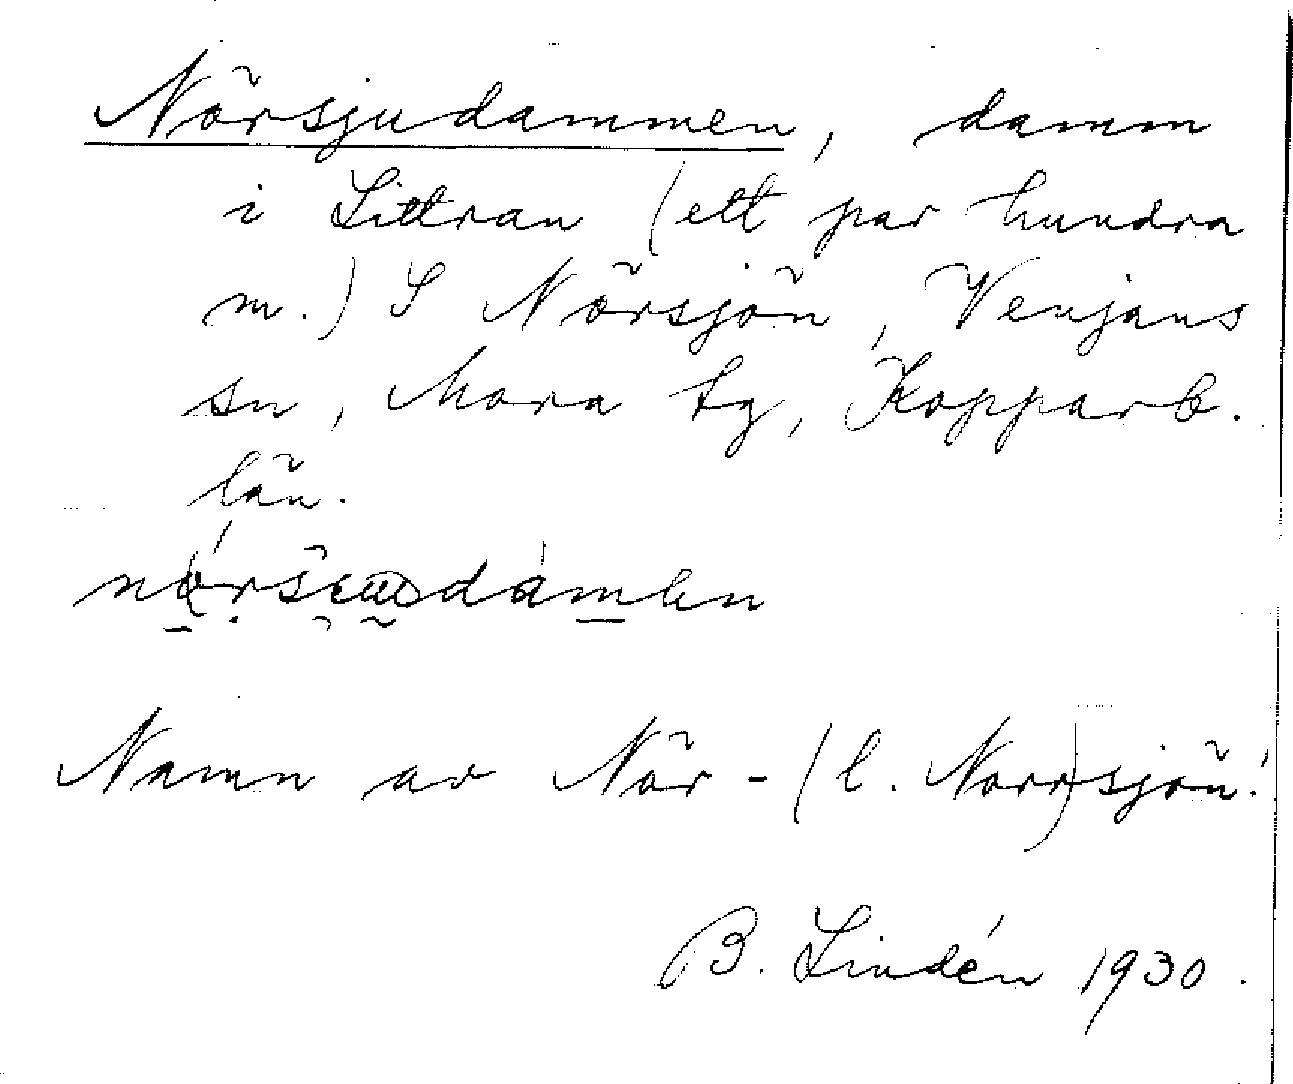 Nörsjudammen, damm
i Littran (ett par hundra
m.) S Nörsjön, Venjans
sn, Mora tg, Kopparb.
län.
Namn av Nör-(l. Norr)sjön!
B. Lindén 1930.